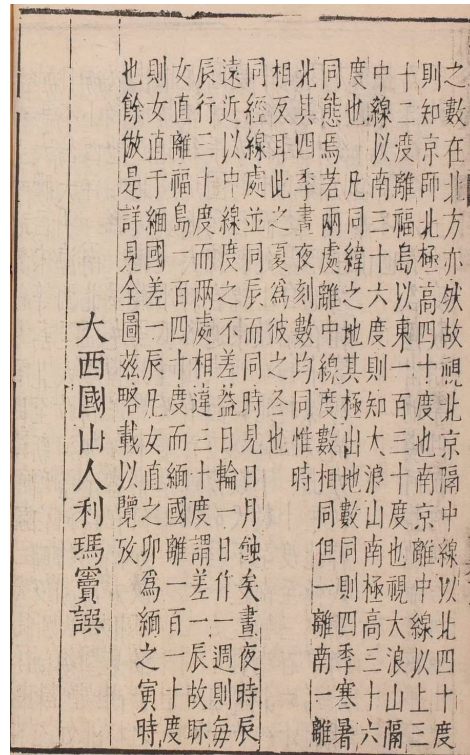 之數在北方亦然故視北京隔中線以北四十度
則知京師北極高四十度也南京離中線以上三
十二度離福島以東一百三十度也視大浪山隔
中線以南三十六度則知大浪山南極高三十六
度也凡同緯之地其極出地數同則四季寒暑
同態焉若兩處離中線度數相同但一離南一離
北其四季晝夜刻數均同惟時
相反耳此之夏爲彼之冬也
同經線處並同辰而同時見日月蝕矣晝夜時辰
遠近以中線度之不差益日輪一日作一週則每
辰行三十度而两處相違三十度謂差一辰故眎
女直離福島一百四十度而緬國離一百一十度
則女直于緬國差一辰凡女直之卯爲緬之寅時
也餘倣是詳見全圖兹略載以覽攷
大西國山人利瑪竇譔